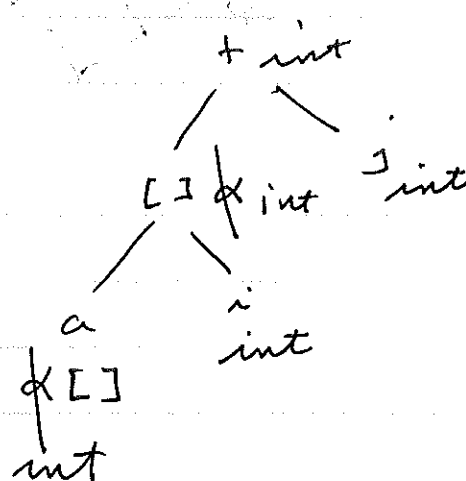 + int
[ ] α int j int
a i
int
α [ ]
int